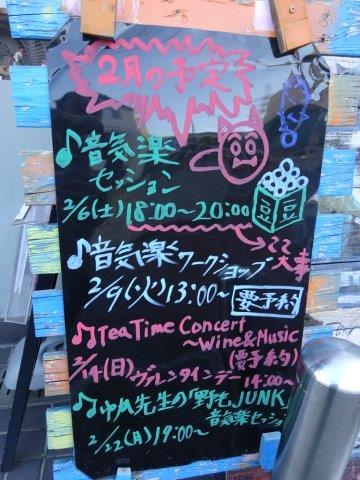 2月の予定
♪音気楽
セッション
2/6(土)18:00~20:00
豆豆
ここ
大事
♪音気楽ワークショップ
2/9(火)13:00~
要予約
♫TeaTime Concert
~Wine&Music
(要予約)
2/14(日)ヴァレンタインデー14:00~
先生の野毛JUNK
音気楽セッション
2/22(月)19:00~